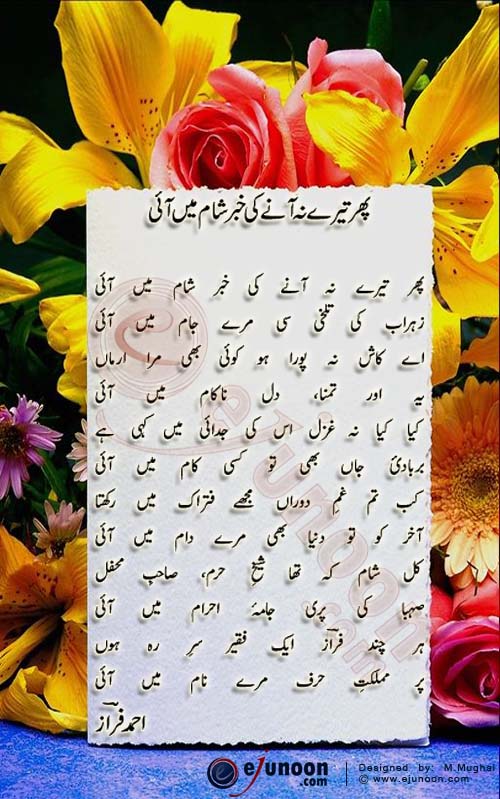 پھر تیرے نہ آنے کی خبر شام میں آئی
پھر تیرے نہ آنے کی خبر شام میں آئی
زہراب کی تلخی سی مرے جام میں آئی
اے کاش نہ پورا ہو کوئی بھی مرا ارماں
یہ اور تمنا، دل ناکام میں آئی
کیا کیا نہ غزل اس کی جدائی میں کہی ہے
بربادیٔ جاں بھی تو کسی کام میں آئی
کب تم غمِ دوراں مجھے فتراک میں رکھتا
آخر کو تو دنیا بھی مرے دام میں آئی
کل شام کہ تھا شیخ حرم، صاحبِ محفل
صہبا کی پری جامۂ احرام میں آئی
ہر چند فرازؔ ایک فقیر سرِ رہ ہوں
پر مملکتِ حرف مرے نام میں آئی
احمد فرازؔ
ejunoon
.com
ejunoon
.com
Designed by: M.Mughal
© www.ejunoon.com